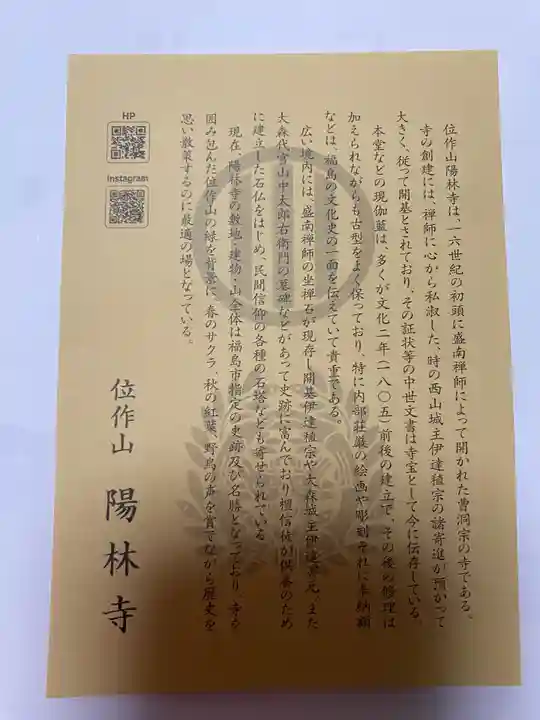 位作山陽林寺は、一六世紀の初頭に盛南禅師によって開かれた曹洞宗の寺である。
寺の創建には、禅師に心から私淑した、時の西山城主伊達稙宗の諸寄進が預かって
大きく、従って開基とされており、その証状等の中世文書は寺宝として今に伝存している。
本堂などの現伽藍は、多くが文化二年(一八〇五)前後の建立で、その後の修理は
加えられながらも古型をよく保っており、特に内部荘厳の絵画や彫刻それに奉納額
などは、福島の文化史の一面を伝えていて貴重である。
広い境内には、盛南禅師の坐禅石が現存し開基伊達稙宗や大森城主伊達実元、また
大森代官山中太郎右衛門の墓碑などがあって史跡に富んでおり檀信徒が供養のため
に建立した石仏をはじめ、民間信仰の各種の石塔なども寄せられている
現在、陽林寺の敷地・建物・山全体は福島市指定の史跡及び名勝となっており、寺を
囲み包んだ位作山の緑を背景に、春のサクラ、秋の紅葉、野鳥の声を賞でながら歴史を
思い散策するのに最適の場となっている。
位作山 陽林寺
HP
Instagram